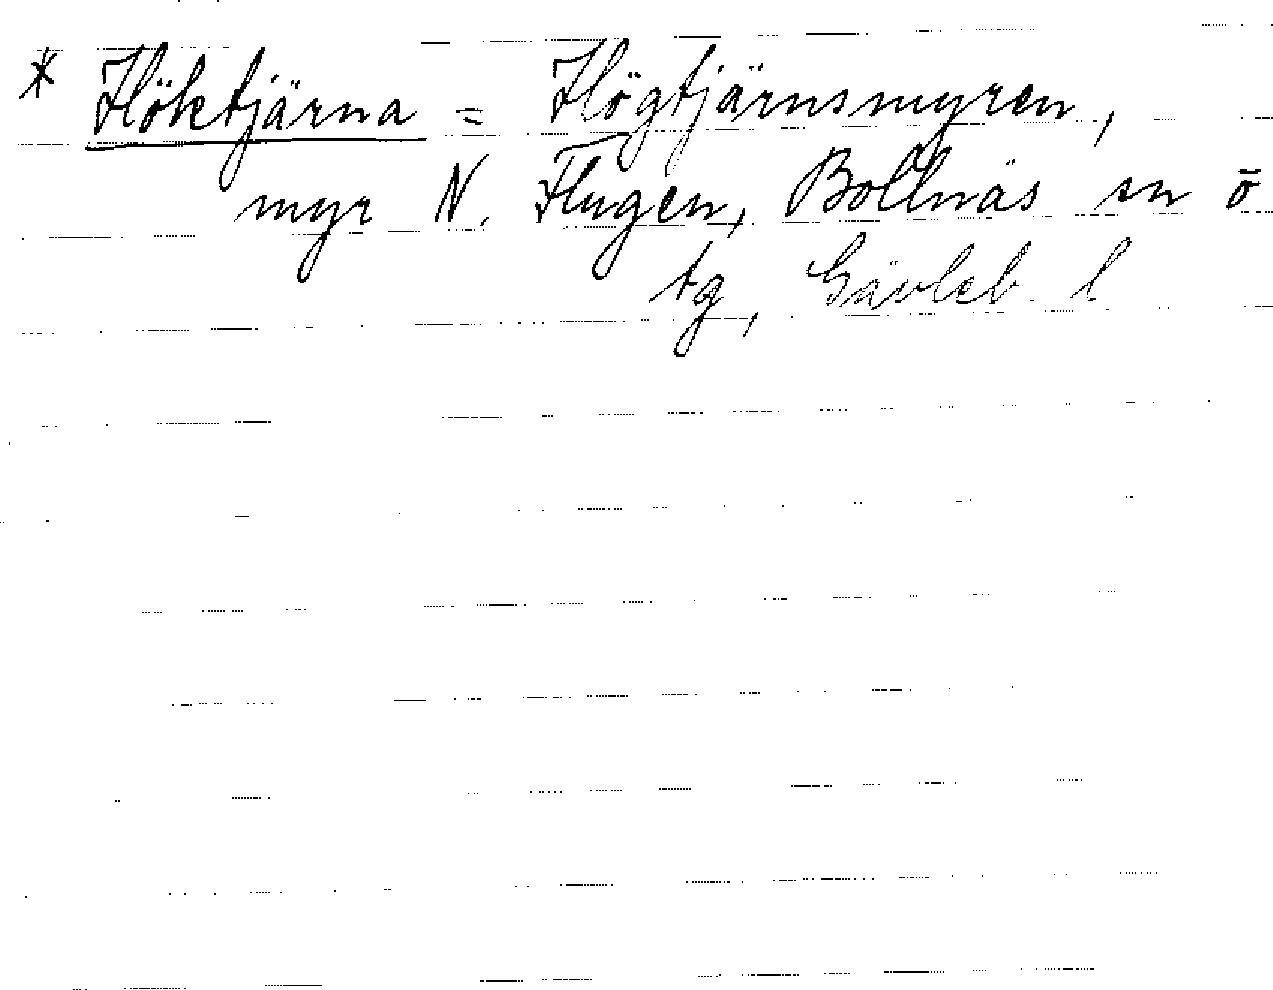 * Höktjärna = Högtjärnsmyren,
myr N. Flugen, Bollnäs sn ö
tg, Gävleb. l